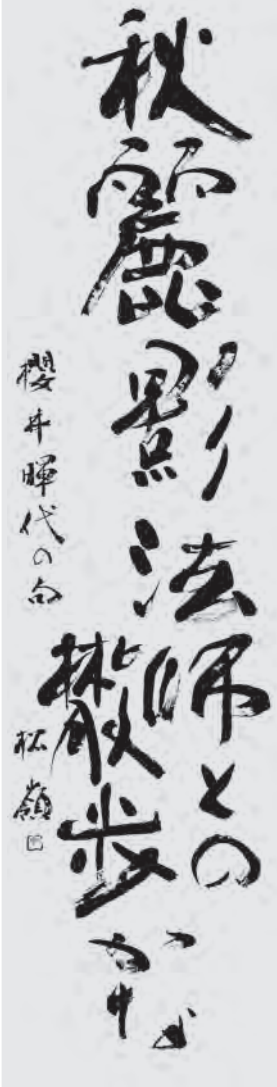 秋麗影法師との
散歩かな
櫻井暉代の句
松嶺